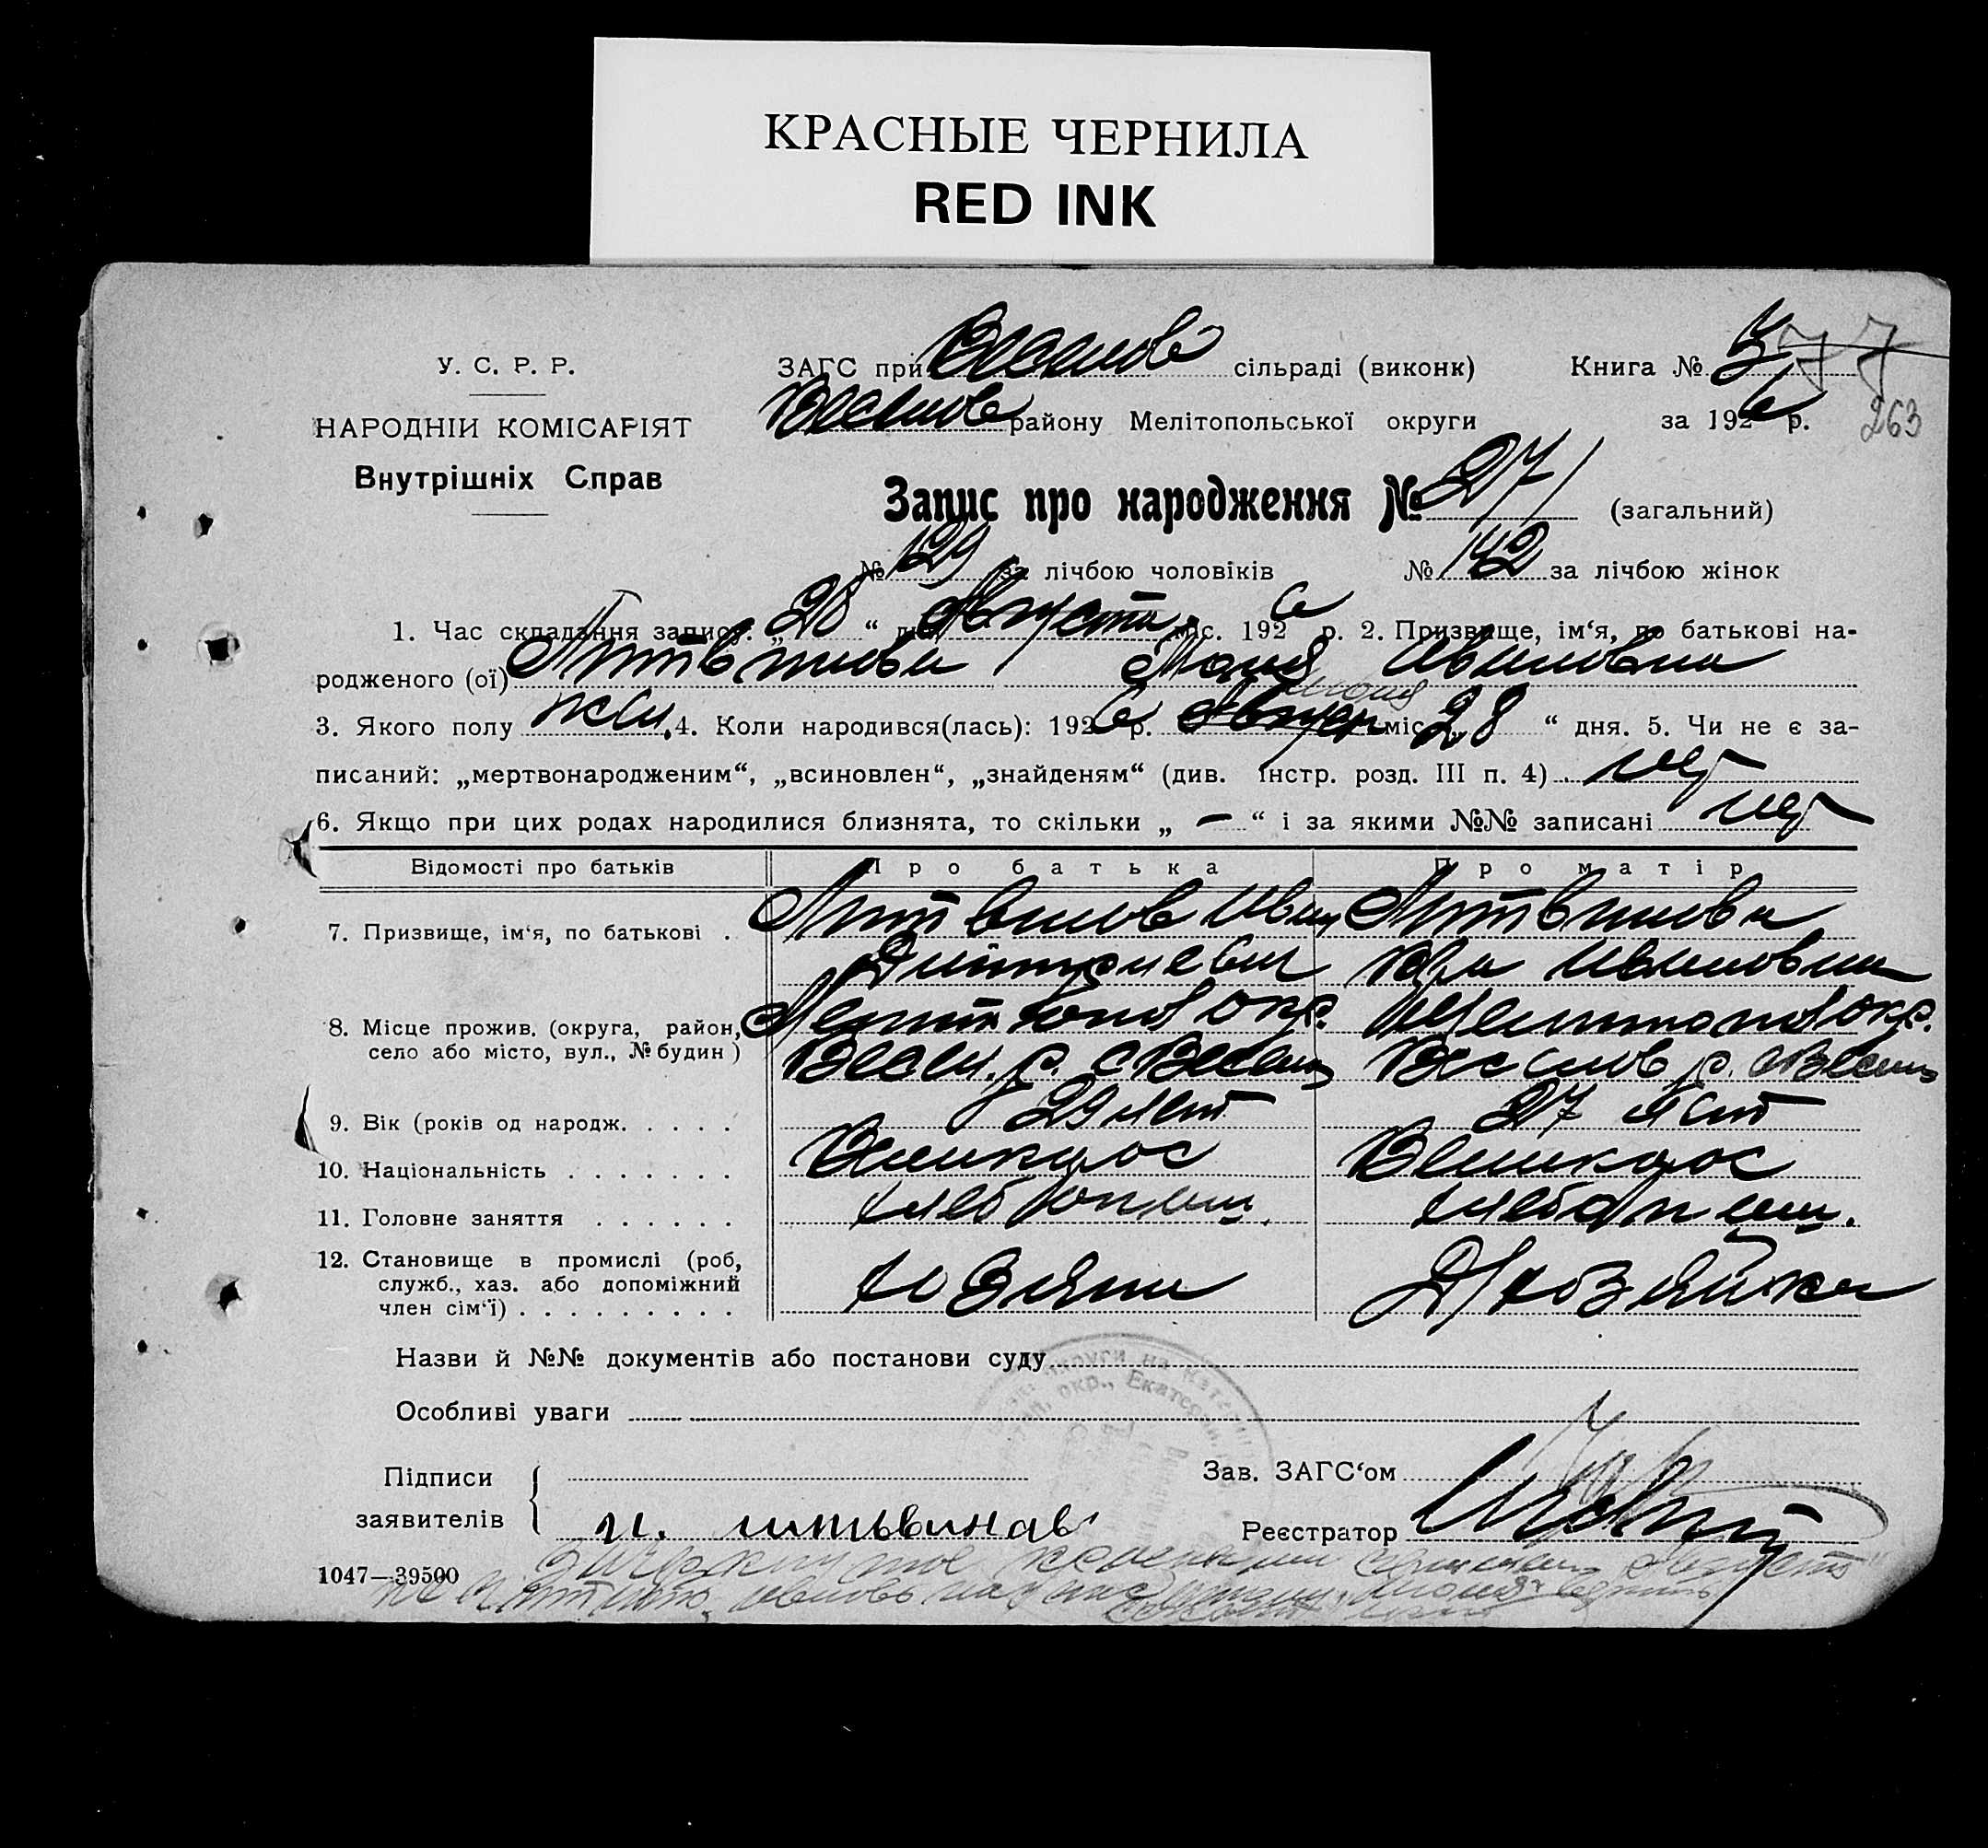 КРАСНЫЕ ЧЕРНИЛА
RED INK
У. С. Р. Р.
НАРОДНІЙ КОМІСАРІЯТ
Внутрішніх Справ
ЗАГС при Веселов сільраді (виконк)
Веселов району Мелітопольської округи
Книга №
77
за 1926 р.
263
Запис про народження № 271 (загальний)
№ 129 за лічбою чоловіків № 142 за лічбою жінок
1. Час складання запису: „28“ дня Августа міс. 1926 р. 2. Призвище, ім‘я, по батькові на-
родженого (ої) Литвинова Ивановна
3. Якого полу жен. 4. Коли народився(лась): 1926 р. Август міс. 28 “ дня. 5. Чи не є за-
писаний: „мертвонародженим“, „всиновлен“, „знайденям“ (див. Інстр. розд. III п. 4) нет
6. Якщо при цих родах народилися близнята, то скільки „ — “ і за якими №№ записані нет
Відомості про батьків Про батька Про матір
7. Призвище, ім‘я, по батькові . Литвинов Иван Литвинова
Дмитриевич Ивановна
8. Місце прожив. (округа, район, Мелитопол окр. Мелитопол окр.
село або місто, вул., № будин ) Весел. р. с Весел Веселов р. с Весел
9. Вік (років од народж. . . . . 29 лет 27 лет
10. Національність . . . . . . . Великорос Великорос
11. Головне заняття . . . . . . хлебопаш. хлебопаш.
12. Становище в промислі (роб,
служб., хаз. або допоміжний
член сім‘ї) . . . . . . . . . хозяин Д/хозяйка
Назви й №№ документів або постанови суду
Особливі уваги
Підписи
заявителів
Зав. ЗАГС‘ом
и. литьвинав
Реєстратор
1047—39500